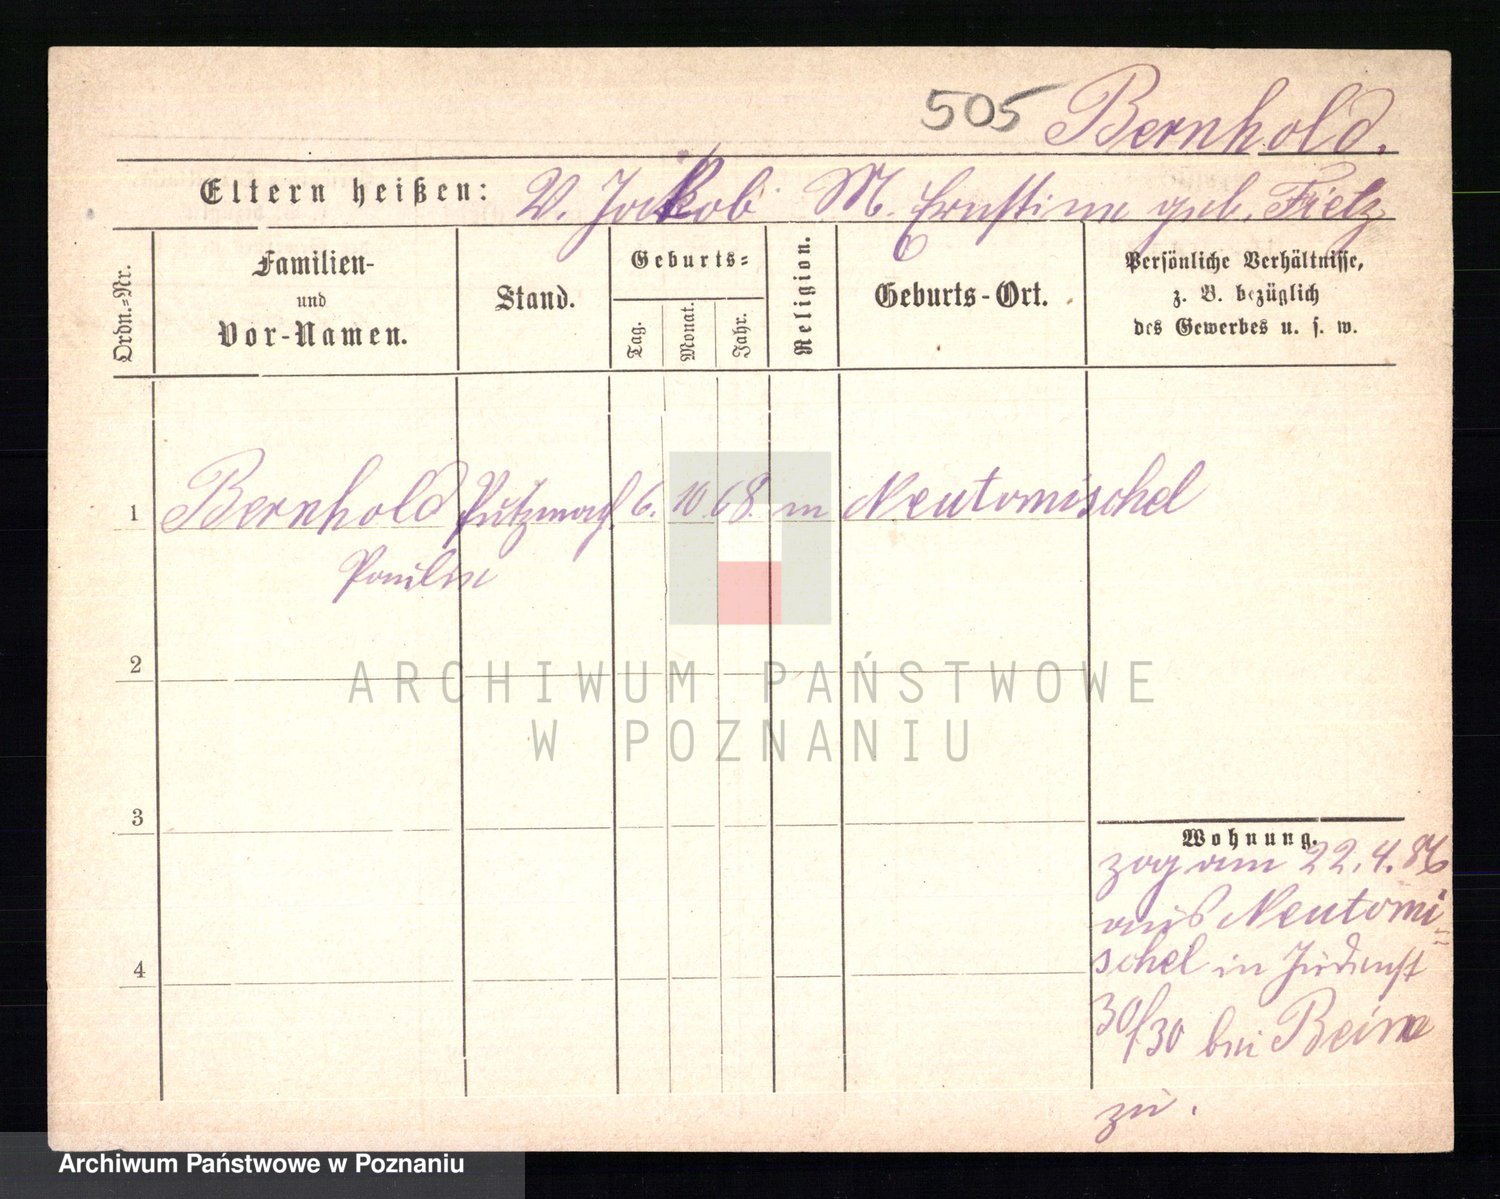 505 Bernhold.
Eltern heißen: V. Jakob M. Ernstine geb. Fietz
Ordn.=Nr.
Familien-
und
Vor-Namen.
Stand.
Geburts=
Tag.
Monat.
Jahr.
Religion.
Geburts-Ort.
Persönliche Verhältnisse,
z. B. bezüglich
des Gewerbes u. s. w.
1 Bernhold Putzmach. 6. 10. 68. m Neutomischel
Paulin
2
ARCHIWUM PAŃSTWOWE
W POZNANIU
3
Wohnung.
zog am 22. 4. 86
aus Neutomi=
schel in Judenst
4
30/30 bei
zu.
Archiwum Państwowe w Poznaniu